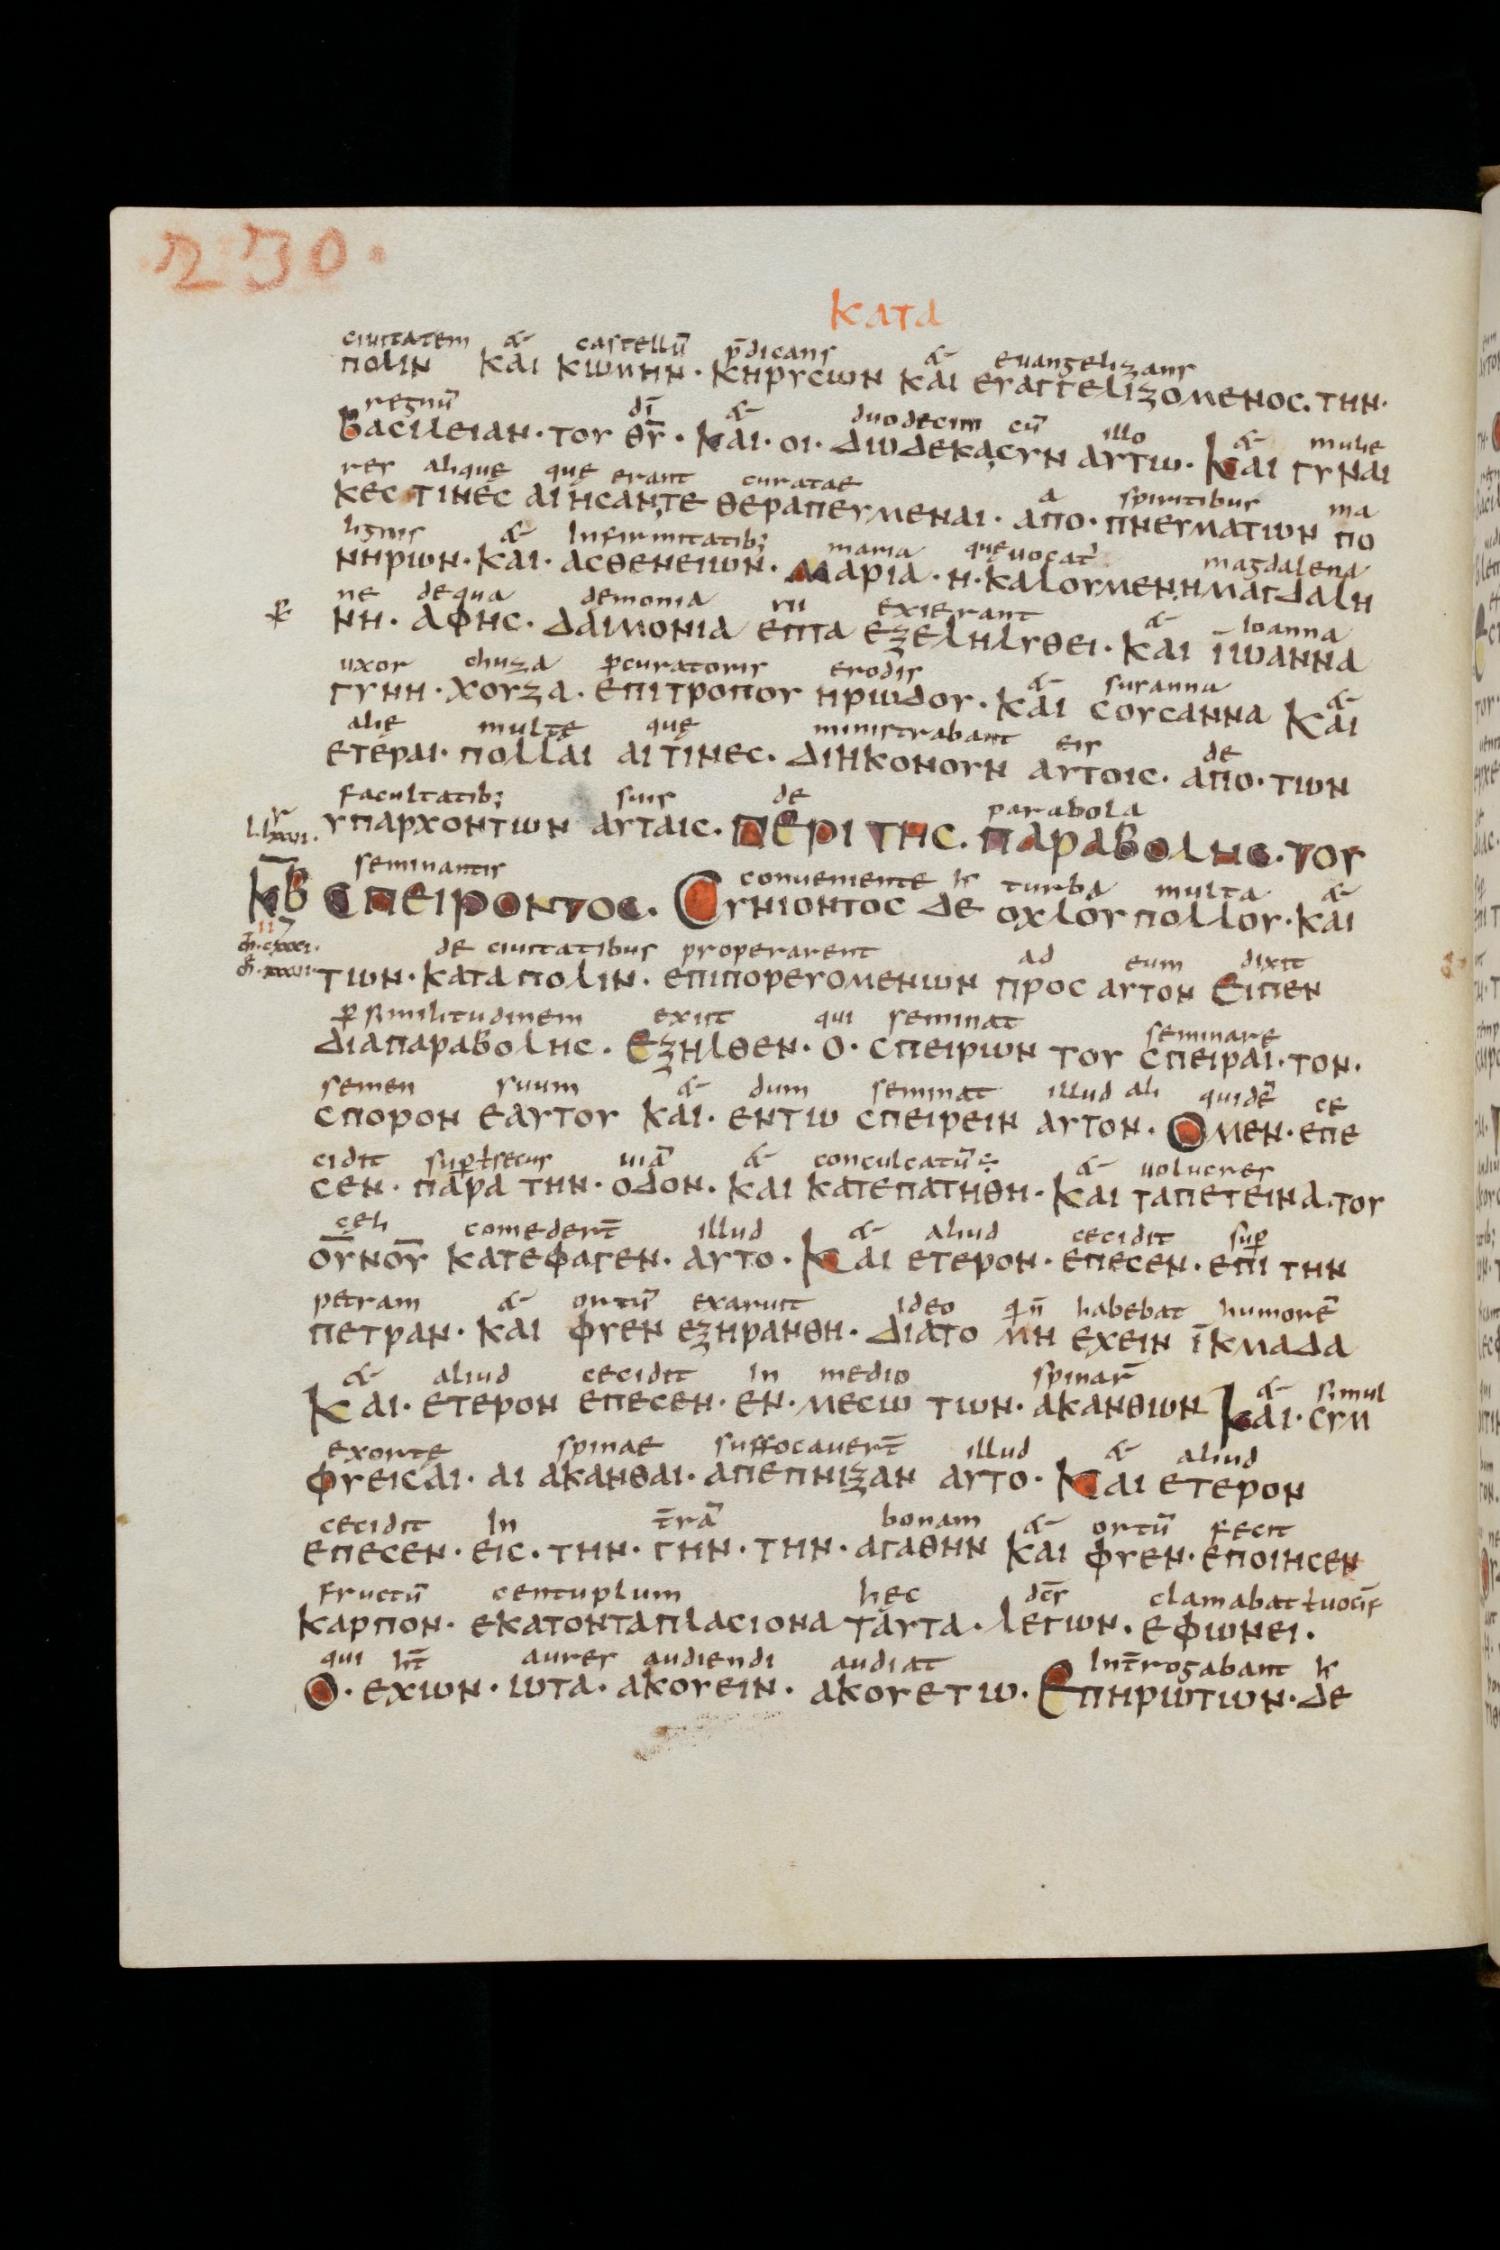 230.
ΚΑΤΑ
ciuitatem & castellū p̄dicans & euangelizans
ΠΟΛΙΝ ΚΑΙ ΚΩΜΗΝ· ΚΗΡΥCΩΝ ΚΑΙ ΕΥΑΓΓΕΛΙΖΟΜΕΝΟC. ΤΗΝ·
regnū dī & duodecim cū illo & mulie
ΒΑCΙΛΕΙΑΝ· ΤΟΥ ΘΥ̅· ΚΑΙ· ΟΙ· ΔΩΔΕΚΑ,CΥΝ ΑΥΤΩ· ΚΑΙ ΓΥΝΑΙ
res alique que erant curatae a spiritibus ma
ΚΕC ΤΙΝΕC ΑΙ ΗCΑΝ,ΤΕ ΘΕΡΑΠΕΥΜΕΝΑΙ· ΑΠΟ· ΠΝΕΥΜΑΤΩΝ ΠΟ
lignis & Infirmitatib; maria que uocat̄ magdalena
ΝΗΡΩΝ· ΚΑΙ· ΑCΘΕΝΕΙΩΝ· ΜΑΡΙΑ· Η· ΚΑΛΟΥΜΕΝ,Η ΜΑΓΔΑΛΗ
ne de qua demonia uii exierant & Ioanna
ΝΗ· ΑΦΗC· ΔΑΙΜΟΝΙΑ ΕΠΤΑ ΕΞΕΛΗΛΥΘΕΙ· ΚΑΙ ΙΩΑΝΝΑ
uxor chuza ꝓcuratoris erodis & susanna &
ΓΥΝΗ· ΧΟΥΖΑ· ΕΠΙΤΡΟΠΟΥ ΗΡΩΔΟΥ· ΚΑΙ CΟΥCΑΝΝΑ ΚΑΙ
alie multe que ministrabant eis de
ΕΤΕΡΑΙ· ΠΟΛΛΑΙ ΑΙΤΙΝΕC· ΔΙΗΚΟΝΟΥΝ ΑΥΤΟΙC· ΑΠΟ· ΤΩΝ
facultatib; suis de parabola
ΥΠΑΡΧΟΝΤΩΝ ΑΥΤΑΙC· ΠΕΡΙ ΤΗC. ΠΑΡΑΒΟΛΗC· ΤΟΥ
seminantis conueniente h turba multa &
ΚΒ CΠΕΙΡΟΝΤΟC. CΥΝΙΟΝΤΟC ΔΕ ΟΧΛΟΥ ΠΟΛΛΟΥ· ΚΑΙ
de ciuitatibus properarent ad eum dixit
ΤΩΝ· ΚΑΤΑ ΠΟΛΙΝ· ΕΠΙΠΟΡΕΥΟΜΕΝΩΝ ΠΡΟC ΑΥΤΟΝ ΕΙΠΕΝ
ꝑ similitudinem exiit qui seminat seminare
ΔΙΑ ΠΑΡΑΒΟΛΗC· ΕΞΗΛΘΕΝ· Ο· CΠΕΙΡΩΝ ΤΟΥ CΠΕΙΡΑΙ· ΤΟΝ·
semen suum & dum seminat illud ali quidē ce
CΠΟΡΟΝ ΕΑΥΤΟΥ ΚΑΙ· ΕΝΤΩ CΠΕΙΡΕΙΝ ΑΥΤΟΝ· ΟΜΕΝ· ΕΠΕ
cidit suꝑ ł secus uiā & conculcatū ÷ & uolucres
CΕΝ· ΠΑΡΑ ΤΗΝ· ΟΔΟΝ· ΚΑΙ ΚΑΤΕΠΑΤΗΘΗ· ΚΑΙ ΤΑΠΕΤΕΙΝΑ· ΤΟΥ
celi comeder̄t illud & aliud cecidit suꝑ
ΟΥ̅ΝΟΥ̅ ΚΑΤΕΦΑΓΕΝ· ΑΥΤΟ· ΚΑΙ ΕΤΕΡΟΝ· ΕΠΕCΕΝ· ΕΠΙ ΤΗΝ
petram & ortū exaruit ideo qn̄ habebat humorē
ΠΕΤΡΑΝ· ΚΑΙ ΦΥΕΝ ΕΞΗΡΑΝΘΗ· ΔΙΑΤΟ ΜΗ ΕΧΕΙΝ ΙΚΜΑΔΑ
& aliud cecidit in medio spinar̄ & simul
ΚΑΙ· ΕΤΕΡΟΝ ΕΠΕCΕΝ· ΕΝ· ΜΕCΩ ΤΩΝ· ΑΚΑΝΘΩΝ ΚΑΙ· CΥΜ
exorte spinae suffocauer̄t illud & aliud
ΦΥΕΙCΑΙ· ΑΙ ΑΚΑΝΘΑΙ· ΑΠΕΠΝΙΞΑΝ ΑΥΤΟ· ΚΑΙ ΕΤΕΡΟΝ
cecidit In t̄rā bonam & ortū fecit
ΕΠΕCΕΝ· ΕΙC· ΤΗΝ· ΓΗΝ· ΤΗΝ· ΑΓΑΘΗΝ ΚΑΙ ΦΥΕΝ· ΕΠΟΙΗCΕΝ
fructū centuplum hec dc̄s clamabat ł uocif̄
ΚΑΡΠΟΝ· ΕΚΑΤΟΝΤΑΠΛΑCΙΟΝΑ ΤΑΥΤΑ· ΛΕΓΩΝ· ΕΦΩΝΕΙ·
qui ht̄ aures audiendi audiat Int̄rogabant h
Ο· ΕΧΩΝ· ΩΤΑ· ΑΚΟΥΕΙΝ· ΑΚΟΥΕΤΩ· ΕΠΗΡΩΤΩΝ· ΔΕ